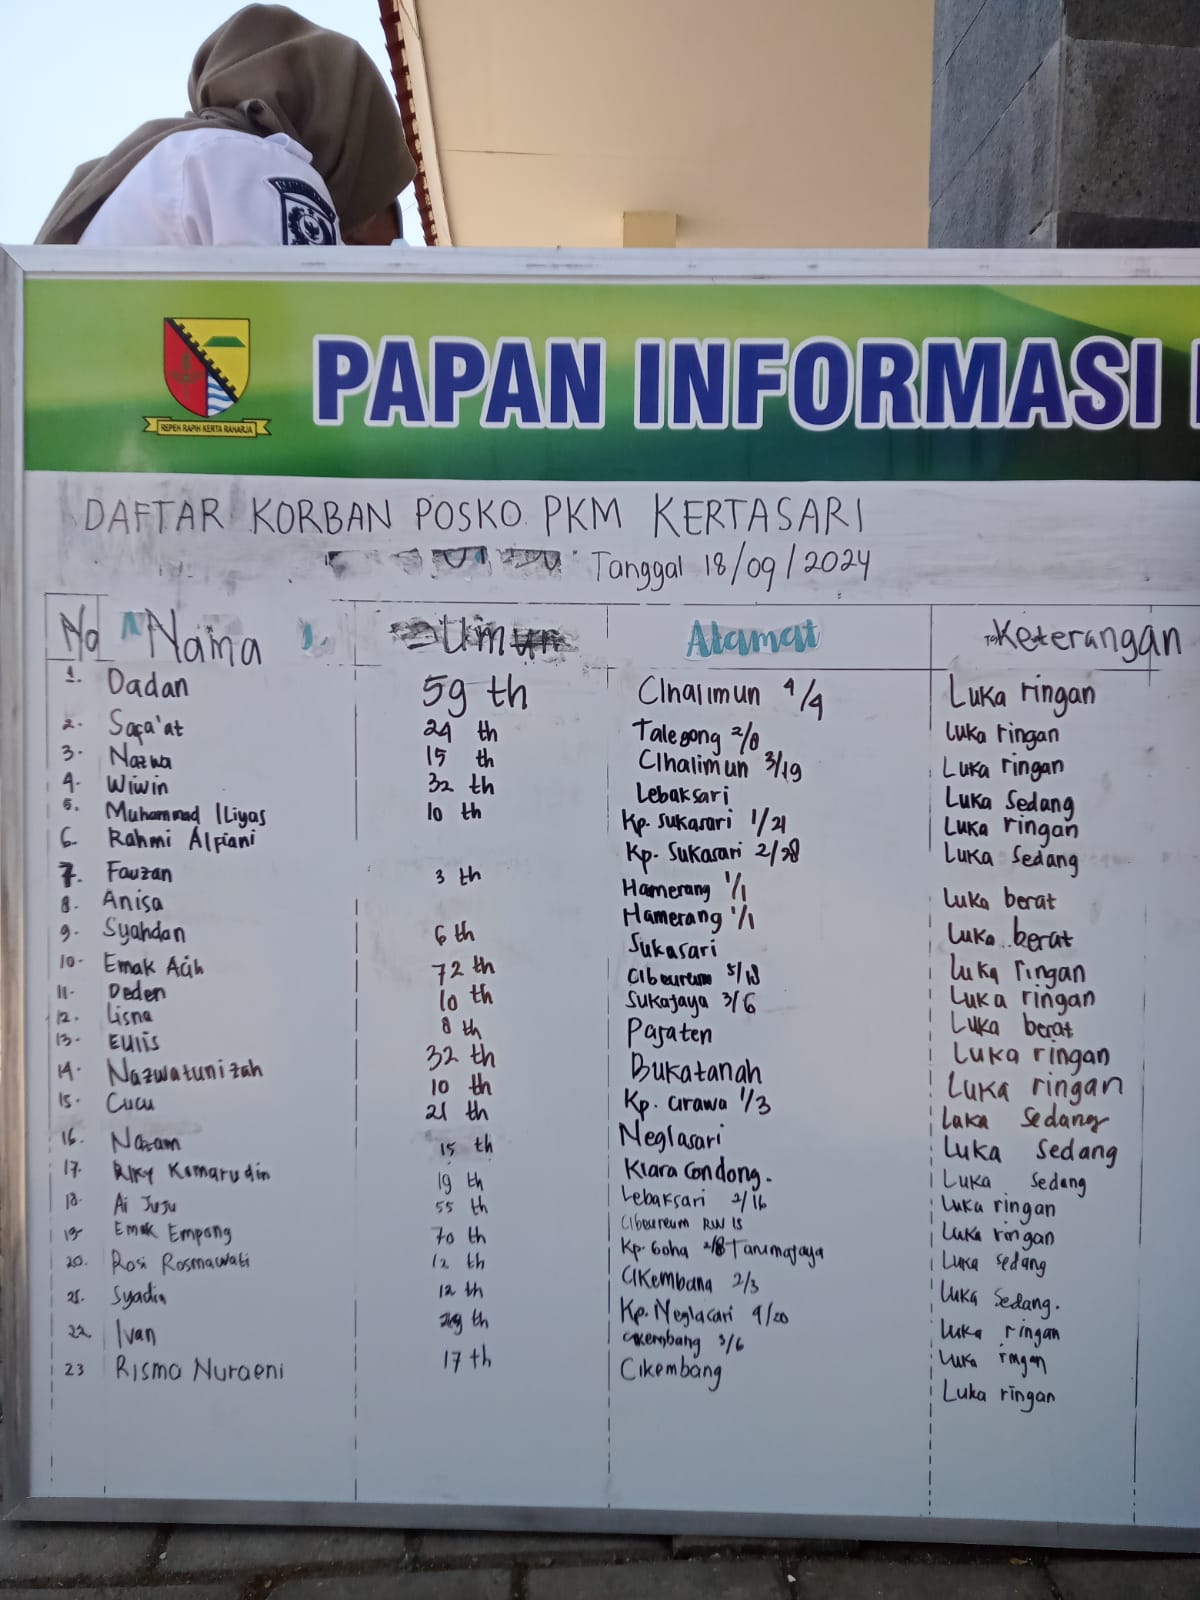 PAPAN INFORMASI
REPEH RAPIH KERTA RAHARJA
DAFTAR KORBAN POSKO PKM KERTASARI
Tanggal 18/09/2024
No Nama Umur Alamat Keterangan
1. Dadan 59 th CIhalimun 4/4 Luka ringan
2. Saça'at 24 th Talegong 2/8 Luka ringan
3. Nazwa 15 th CIhalimun 3/19 Luka ringan
4. Wiwin 32 th Lebaksari Luka Sedang
5. Muhammad ILiyas 10 th Kp. Sukasari 1/21 Luka ringan
6. Rahmi Alpiani Kp. Sukasari 2/28 Luka Sedang
7. Fauzan 3 th Hamerang 1/1 Luka berat
8. Anisa Hamerang 1/1 Luka berat
9. Syahdan 6 th Sukasari Luka ringan
10. Emak Acih 72 th Cibeureum 5/18 Luka ringan
11. Deden 10 th Sukajaya 3/6 Luka berat
12. Lisna 8 th Pajaten Luka ringan
13. EUlis 32 th Bukatanah Luka ringan
14. Nazwatunizah 10 th Kp. Cirawa 1/3 Luka Sedang
15. Cucu 21 th Neglasari Luka Sedang
16. Nazam 15 th Kiara Condong. Luka Sedang
17. RIKY Komarudin 19 th Lebaksari 2/16 Luka ringan
18. Ai Juju 55 th Cibeureum RW 15 Luka ringan
19. Emak Empong 70 th Kp. Goha 2/8 Tarumajaya Luka sedang
20. Rosi Rosmawati 12 th CIKembang 2/3 Luka Sedang.
21. Syadia 12 th Kp. Neglasari 4/20 Luka ringan
22. Ivan 29 th Cikembang 3/6 Luka ringan
23 Risma Nuraeni 17 th Cikembang Luka ringan